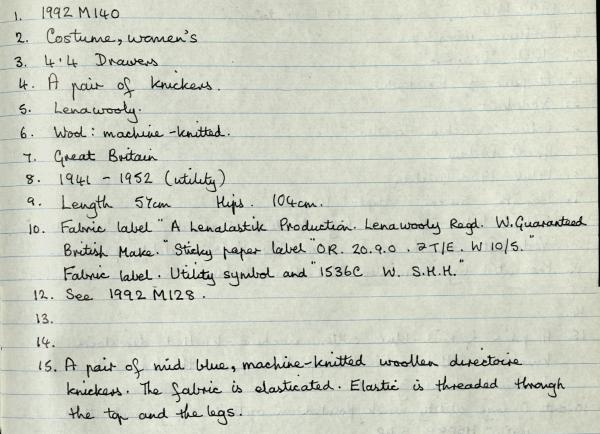 1. 1992 M140
2. Costume, women's
3. 4.4 Drawers
4. A pair of knickers.
5. Lenawooly.
6. Wool: machine-knitted.
7. Great Britain
8. 1941 - 1952 (utility)
9. Length 57cm Hips. 104cm.
10. Fabric label "A Lenalastik Production. Lenawooly Regd. W. Guaranteed
British Make." Sticky paper label "OR. 20.9.0. 2T/E. W 10/5."
Fabric label. Utility symbol and "1536C W. S.H.H."
12. See 1992 M128.
13.
14.
15. A pair of mid blue, machine-knitted woollen directoire
knickers. The fabric is elasticated. Elastic is threaded through
the top and the legs.